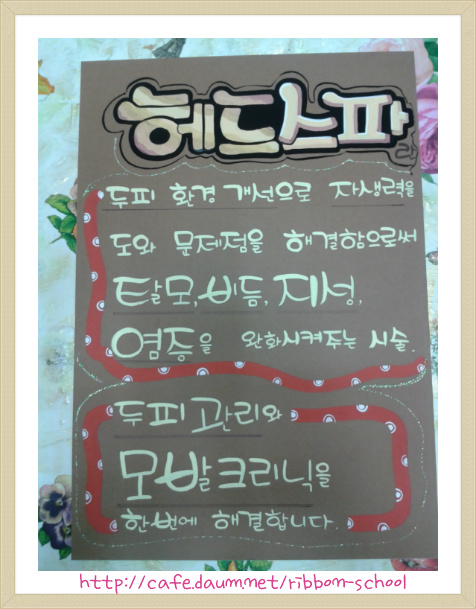 헤드스파란
두피 환경 개선으로 자생력을
도와 문제점을 해결함으로써
탈모, 비듬, 지성,
염증을 완화시켜주는 시술.
두피 관리와
모발크리닉을
한번에 해결합니다.
http://cafe.daum.net/ribbom-school